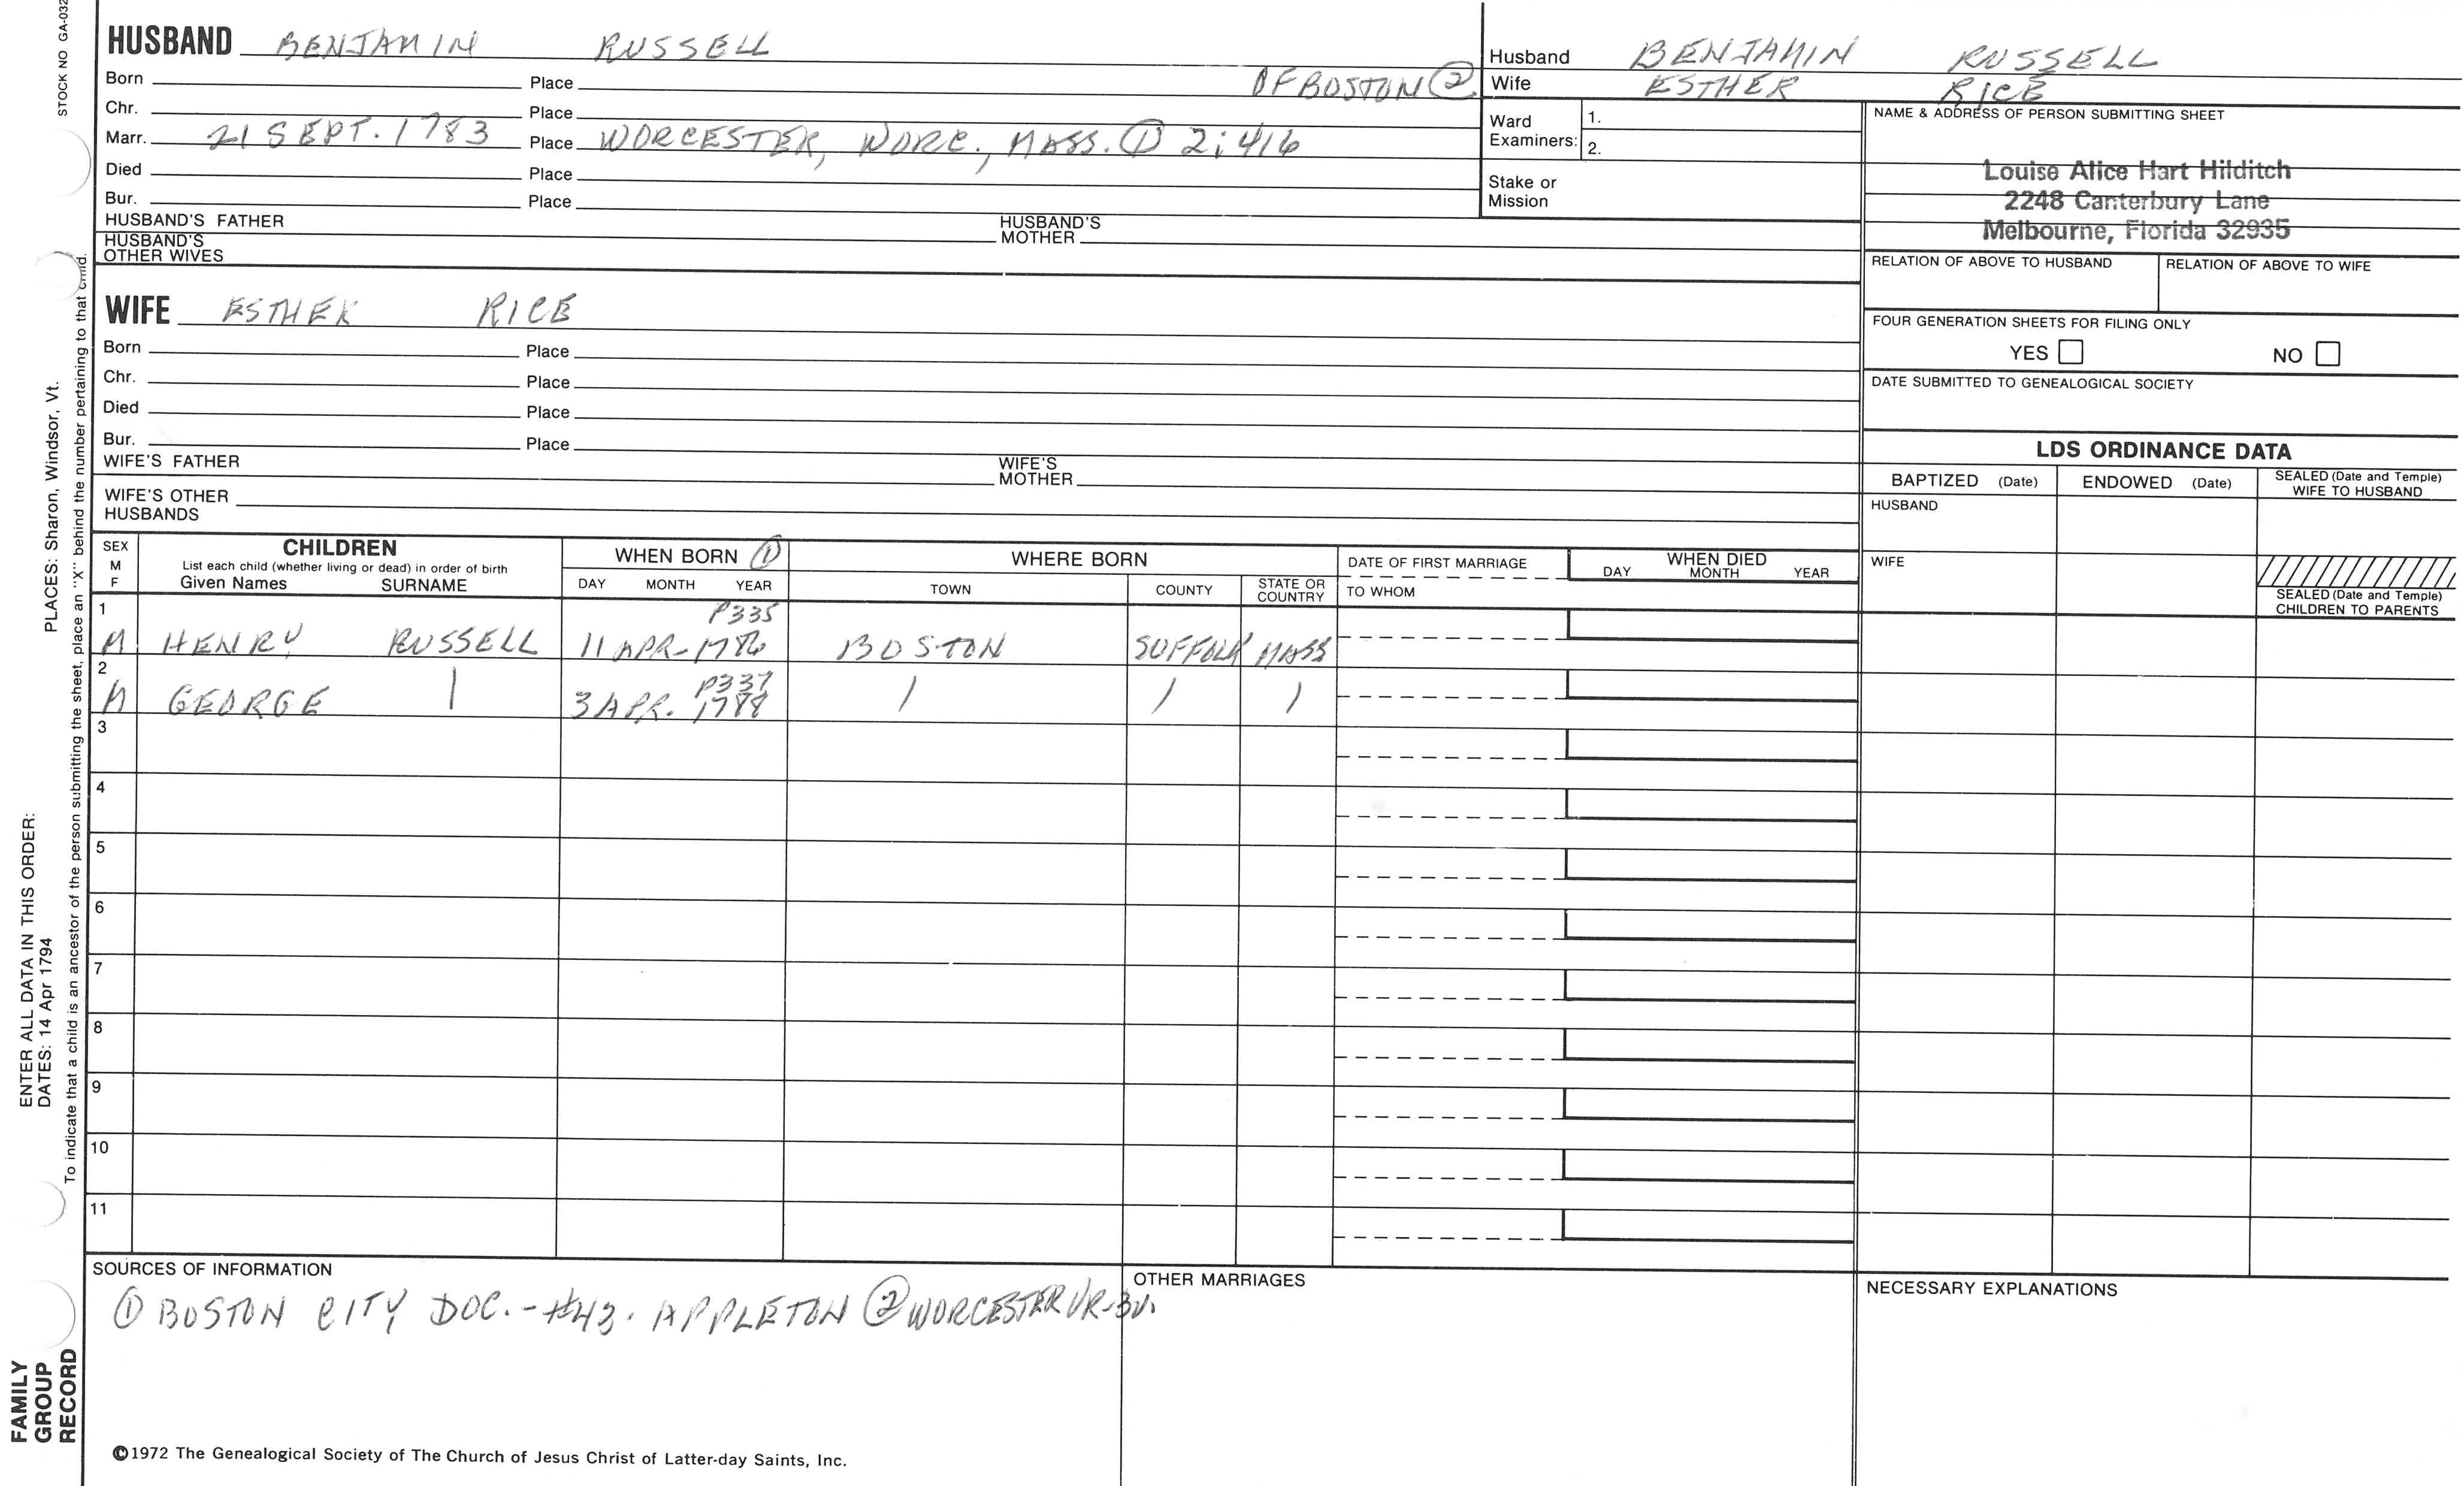 STOCK NO GA-032
HUSBAND BENJAMIN RUSSELL
Born Place OF BOSTON ②
Chr. Place
Marr. 21 SEPT. 1783 Place WORCESTER, WORC., MASS. ① 2:416
Died Place
Bur. Place
HUSBAND'S FATHER HUSBAND'S MOTHER
HUSBAND'S OTHER WIVES
Husband BENJAMIN RUSSELL
Wife ESTHER RICE
Ward Examiners: 1.
2.
Stake or Mission
NAME & ADDRESS OF PERSON SUBMITTING SHEET
Louise Alice Hart Hilditch
2248 Canterbury Lane
Melbourne, Florida 32935
RELATION OF ABOVE TO HUSBAND RELATION OF ABOVE TO WIFE
FOUR GENERATION SHEETS FOR FILING ONLY
YES NO
DATE SUBMITTED TO GENEALOGICAL SOCIETY
WIFE ESTHER RICE
Born Place
Chr. Place
Died Place
Bur. Place
WIFE'S FATHER WIFE'S MOTHER
WIFE'S OTHER HUSBANDS
LDS ORDINANCE DATA
BAPTIZED (Date) ENDOWED (Date) SEALED (Date and Temple) WIFE TO HUSBAND
HUSBAND
WIFE
SEALED (Date and Temple) CHILDREN TO PARENTS
SEX M F
CHILDREN
List each child (whether living or dead) in order of birth
Given Names SURNAME
WHEN BORN ①
DAY MONTH YEAR
WHERE BORN
TOWN COUNTY STATE OR COUNTRY
DATE OF FIRST MARRIAGE
TO WHOM
WHEN DIED
DAY MONTH YEAR
1 P335
M HENRY RUSSELL 11 APR-1786 BOSTON SUFFOLK MASS
2 P337
M GEORGE | 3 APR. 1788 | | |
3
4
5
6
7
8
9
10
11
SOURCES OF INFORMATION
① BOSTON CITY DOC. - #43. APPLETON ② WORCESTER VR-BU.
OTHER MARRIAGES
NECESSARY EXPLANATIONS
©1972 The Genealogical Society of The Church of Jesus Christ of Latter-day Saints, Inc.
FAMILY GROUP RECORD
ENTER ALL DATA IN THIS ORDER:
DATES: 14 Apr 1794
PLACES: Sharon, Windsor, Vt.
To indicate that a child is an ancestor of the person submitting the sheet, place an "X" behind the number pertaining to that child.